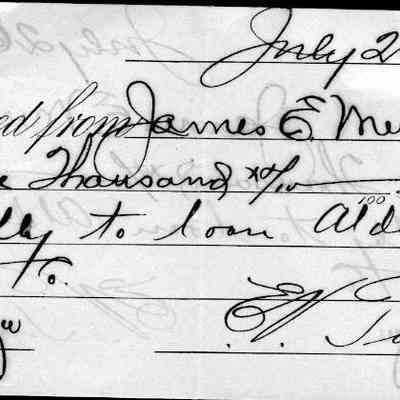 July 2
ed from James E. Me
e Thousand xx/100
lly to loan Ald
to.
EN